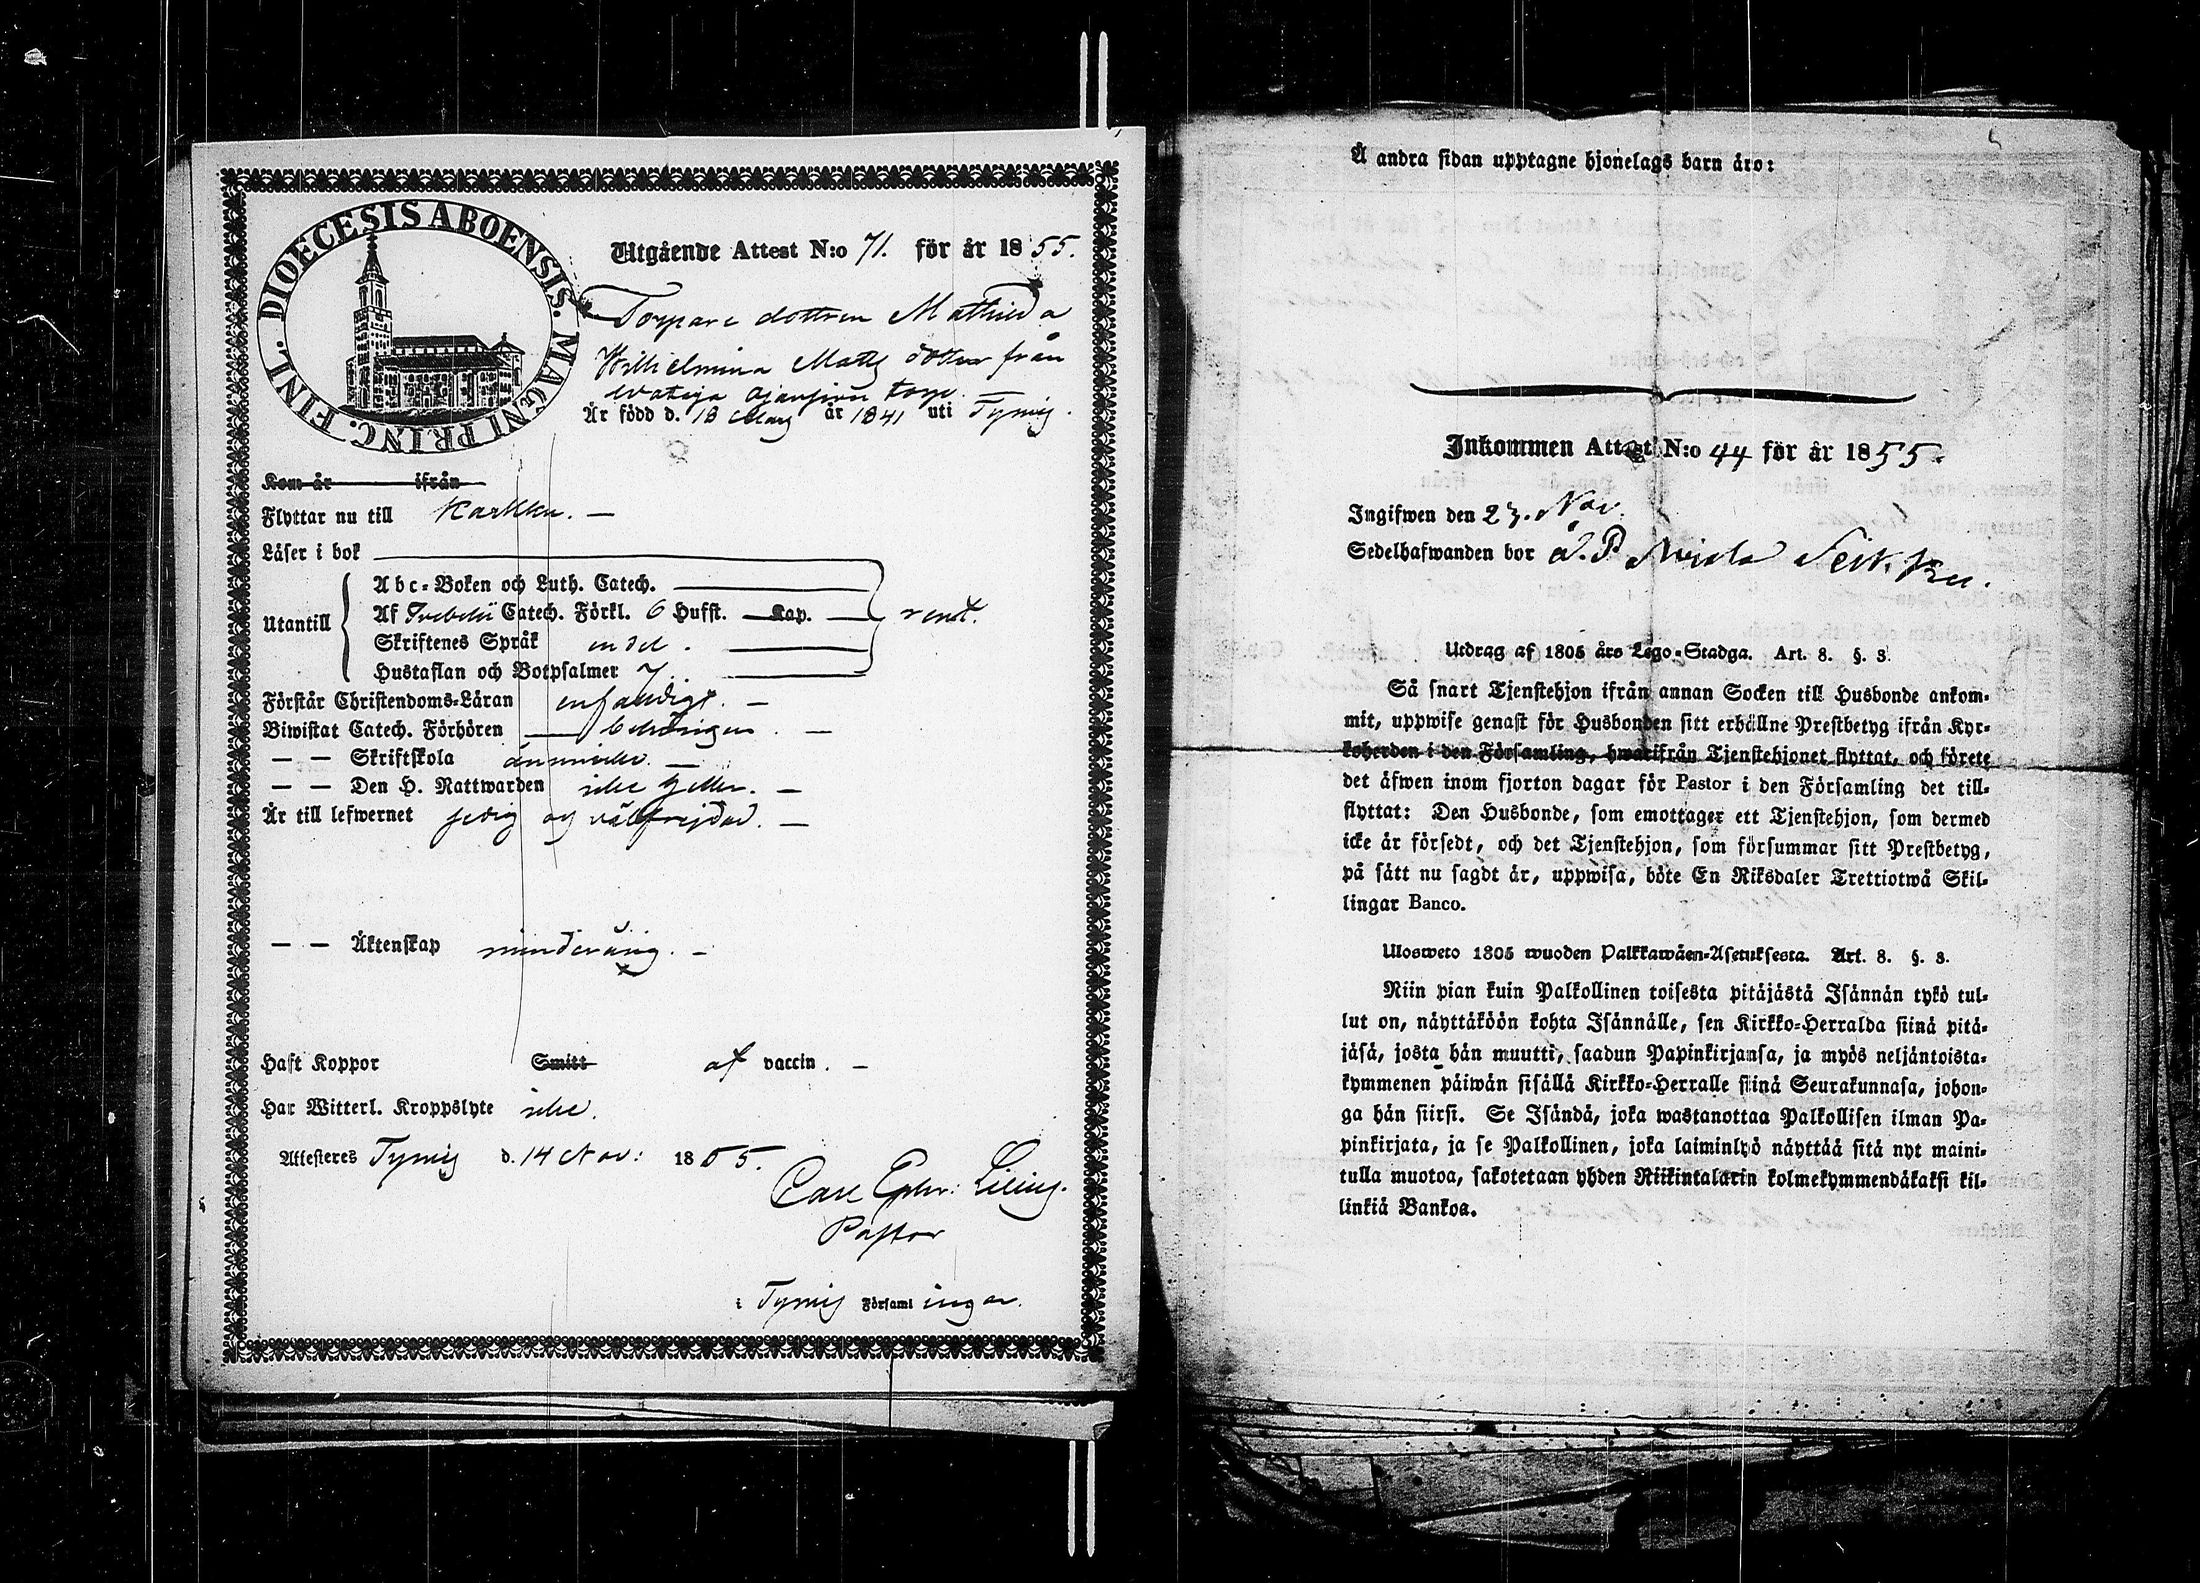 DIOECESIS ABOENSIS. MAGNI PRINC. FINL.
Utgående Attest N:o 71. för år 1855.
Torpare dottren Mathilda
Wilhelmina Matts dotter från
torp.
Är född d. 18 Maj år 1841 uti Tyrvis.
Kom år ifrån
Flyttar nu till Karkku. —
Läser i bok
Utantill
Abc-Boken och Luth. Catech.
Af Svebelii Catech. Förkl. 6 Hufst. Kap.
Skriftenes Språk en del.
Hustaflan och Botpsalmer 7
rent.
Förstår Christendoms-Läran enfaldigt. —
Biwistat Catech. Förhören behörigen. —
— — Skriftskola ännu icke. —
— — Den H. Nattwarden icke heller. —
Är till lefwernet sedig och välfrejdad. —
— — Äktenskap minderårig. —
Haft Koppor Smitt af vaccin. —
Har Witterl. Kroppslyte icke.
Attesteres Tyrvis d. 14 Nov: 1855.
Carl Ephr: Lilius.
Pastor
i Tyrvis Församl ingar.
Å andra sidan upptagne hjonelags barn äro:
Inkommen Attest N:o 44 för år 1855.
Ingifwen den 23. Nov.
Sedelhafwanden bor å. P.
Utdrag af 1805 års Lego-Stadga. Art. 8. §. 3.
Så snart Tjenstehjon ifrån annan Socken till Husbonde ankom-
mit, uppwise genast för Husbonden sitt erhållne Prestbetyg ifrån Kyr-
koherden i den Församling, hwarifrån Tjenstehjonet flyttat, och förete
det äfwen inom fjorton dagar för Pastor i den Församling det till-
flyttat: Den Husbonde, som emottager ett Tjenstehjon, som dermed
icke är försedt, och det Tjenstehjon, som försummar sitt Prestbetyg,
på sätt nu sagdt är, uppwisa, böte En Riksdaler Trettiotwå Skil-
lingar Banco.
Ulosweto 1805 wuoden Palkkawäen-Asetuksesta. Art. 8. §. 3.
Niin pian kuin Palkollinen toisesta pitäjästä Isännän tykö tul-
lut on, näyttäköön kohta Isännälle, sen Kirkko-Herralda siinä pitä-
jäsä, josta hän muutti, saadun Papinkirjansa, ja myös neljäntoista-
kymmenen päiwän sisällä Kirkko-Herralle siinä Seurakunnasa, johon-
ga hän siirsi. Se Isändä, joka wastanottaa Palkollisen ilman Pa-
pinkirjata, ja se Palkollinen, joka laiminlyö näyttää sitä nyt maini-
tulla muotoa, sakotetaan yhden Riikintalarin kolmekymmendäkaksi kil-
linkiä Bankoa.